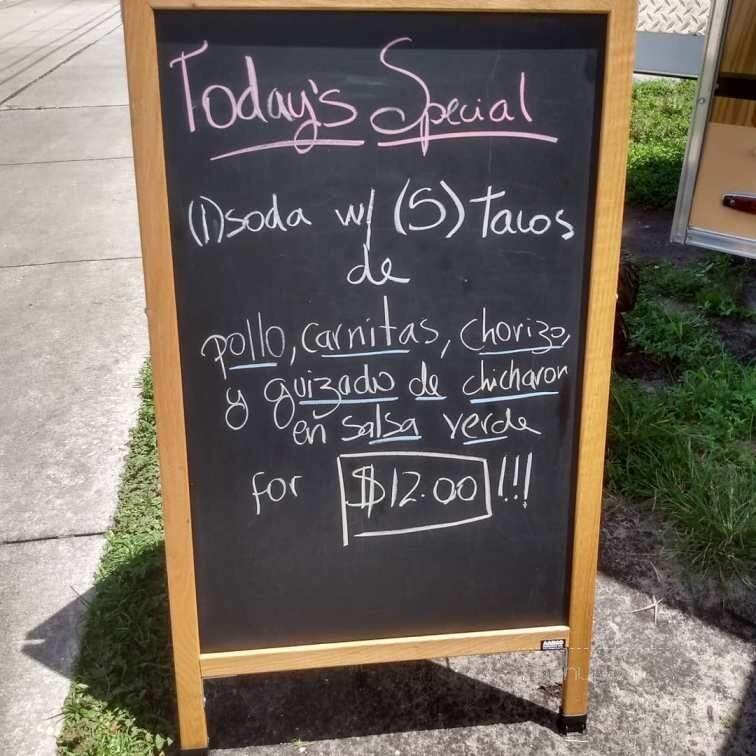 Today's Special
(1) soda w/ (5) Tacos
de
pollo, carnitas, chorizo,
y guizado de chicharon
en salsa verde
for $12.00 !!!